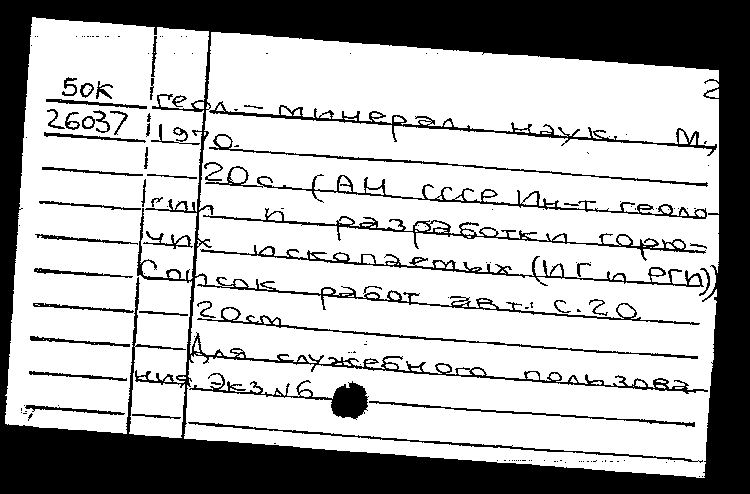 2
50К геол.- минерал. наук. М.,
26037 1970.
20 с. (АН СССР Ин-т геоло-
гии и разработки горю=
чих ископаемых (ИГ и РГИ))
Список работ авт.: с.20
20см
Для служебного пользова
ния. Экз.N6